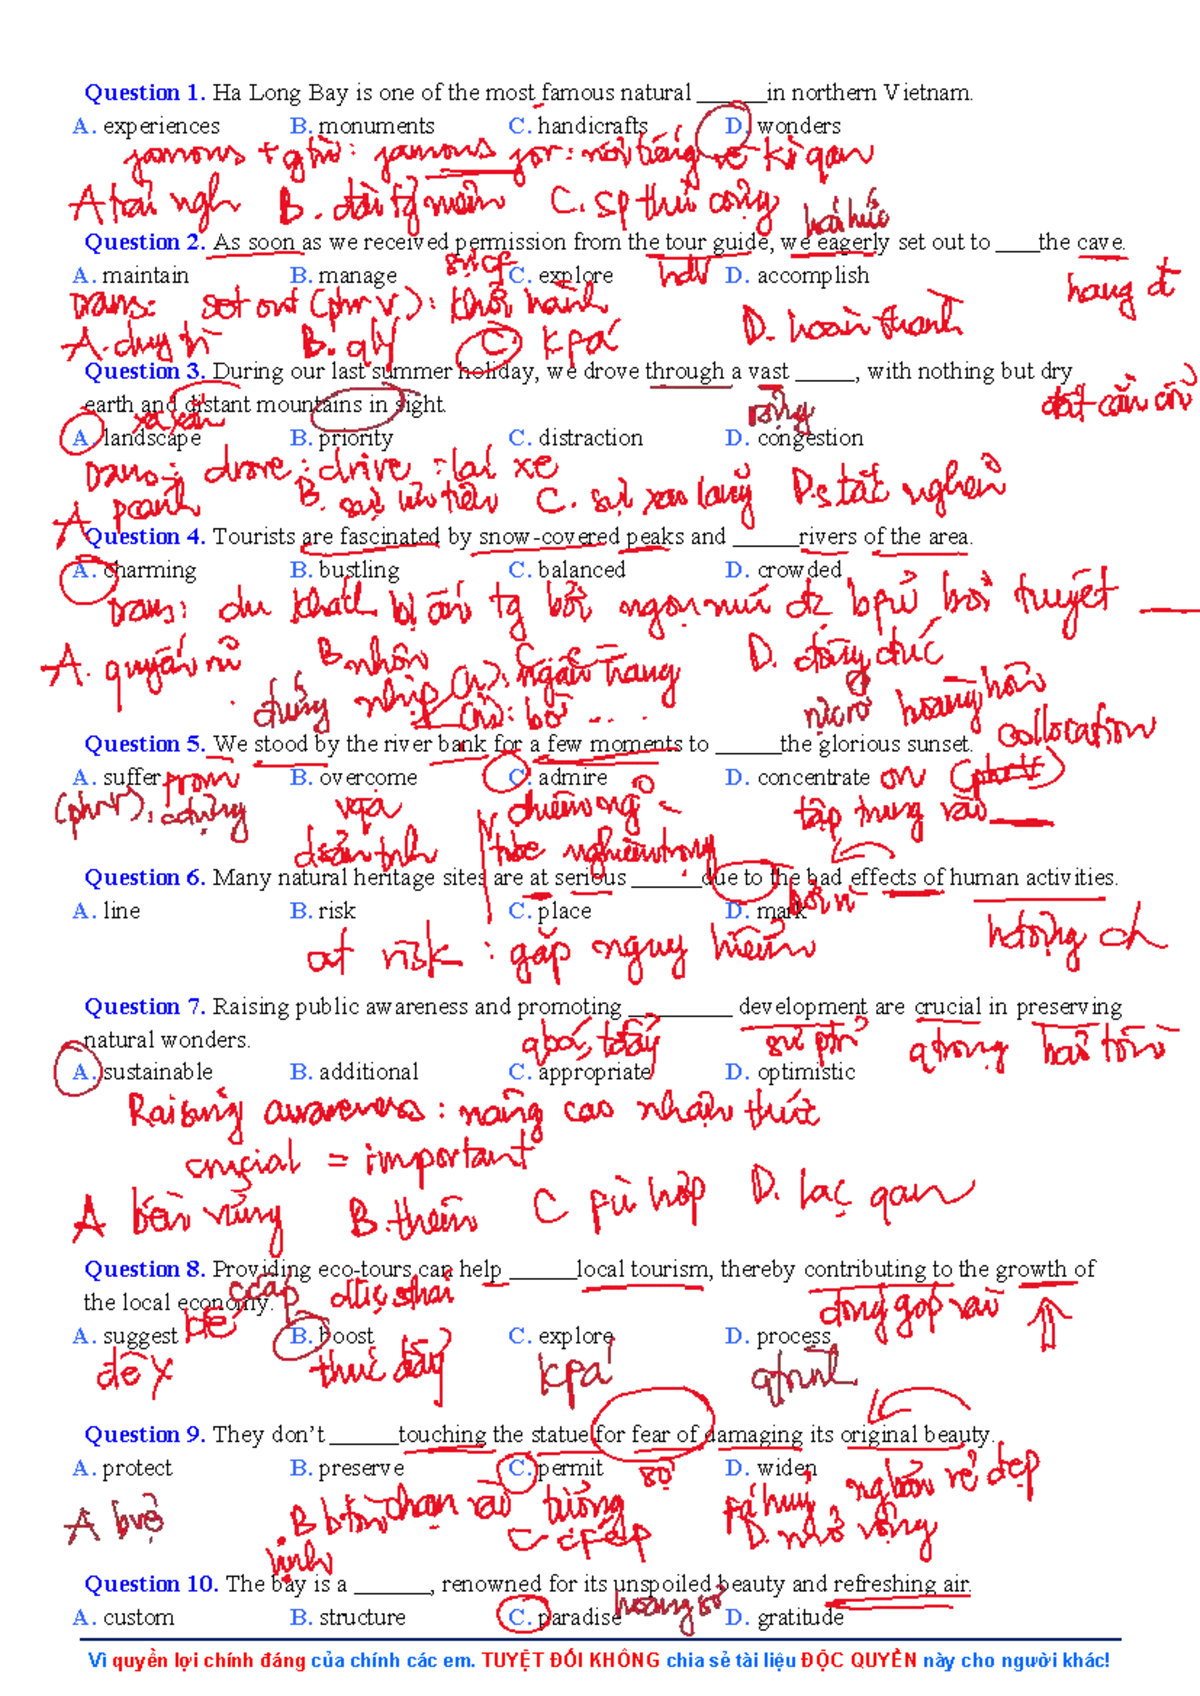 Question 1. Ha Long Bay is one of the most famous natural ______in northern Vietnam.
A. experiences B. monuments C. handicrafts D. wonders
famous + giới: famous for: nổi tiếng về kì quan
A trải ngh B. đài tg niệm C. sp thủ công
háo hức
Question 2. As soon as we received permission from the tour guide, we eagerly set out to ____the cave.
A. maintain B. manage C. explore D. accomplish
sự cf hdv hang đ
trans: set out (phr v): khởi hành
A. duy trì B. qlý C. kpá D. hoàn thành
Question 3. During our last summer holiday, we drove through a vast _____, with nothing but dry
earth and distant mountains in sight.
xa xăm rộng đất cằn cỗi
A. landscape B. priority C. distraction D. congestion
trans: drove: drive = lái xe
A pcảnh B. sự ưu tiên C. sự xao lãng D. s tắc nghẽn
Question 4. Tourists are fascinated by snow-covered peaks and ______rivers of the area.
A. charming B. bustling C. balanced D. crowded
trans: du khách bị ấn tg bởi ngọn núi đc bphủ bởi tuyết ___
A. quyến rũ B nhộn nhịp D. đông đúc
(n): ngân hàng
(n): bờ ....
đứng hoàng hôn
collocation
Question 5. We stood by the river bank for a few moments to ______the glorious sunset.
A. suffer B. overcome C. admire D. concentrate
from on (phr V)
(phr V): chịu đựng vượt chiêm ngg tập trung vào
nghiêm trọng
Question 6. Many natural heritage sites are at serious ______due to the bad effects of human activities.
A. line B. risk C. place D. mark
bởi vì
at risk : gặp nguy hiểm hđộng cn
Question 7. Raising public awareness and promoting _________ development are crucial in preserving
natural wonders.
qbá, tđẩy sự ptr qtrọng bảo tồn
A. sustainable B. additional C. appropriate D. optimistic
Raising awareness: nâng cao nhận thức
crucial = important
A bền vững B. thêm C phù hợp D. lạc quan
Question 8. Providing eco-tours can help ______local tourism, thereby contributing to the growth of
the local economy.
ccấp dlịc sthái đóng góp vào
A. suggest B. boost C. explore D. process
đề ý thúc đẩy kpá qtrình
Question 9. They don’t ______touching the statue for fear of damaging its original beauty.
A. protect B. preserve C. permit D. widen
chạm vào tượng sợ phá huỷ vẻ đẹp
A bvệ B btồn C cfép D. mở rộng
vịnh
Question 10. The bay is a ______, renowned for its unspoiled beauty and refreshing air.
hoang sơ
A. custom B. structure C. paradise D. gratitude
Vì quyền lợi chính đáng của chính các em. TUYỆT ĐỐI KHÔNG chia sẻ tài liệu ĐỘC QUYỀN này cho người khác!